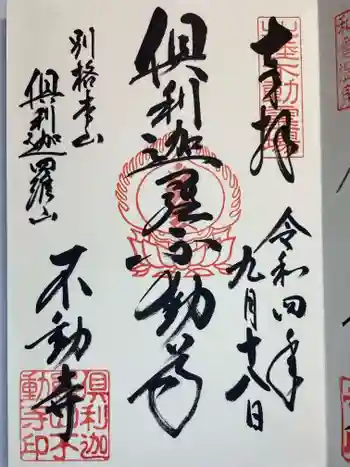 奉拝
令和四年
九月十八日
倶利迦羅不動尊
別格本山
倶利迦羅山
不動寺
倶利迦
不動寺印